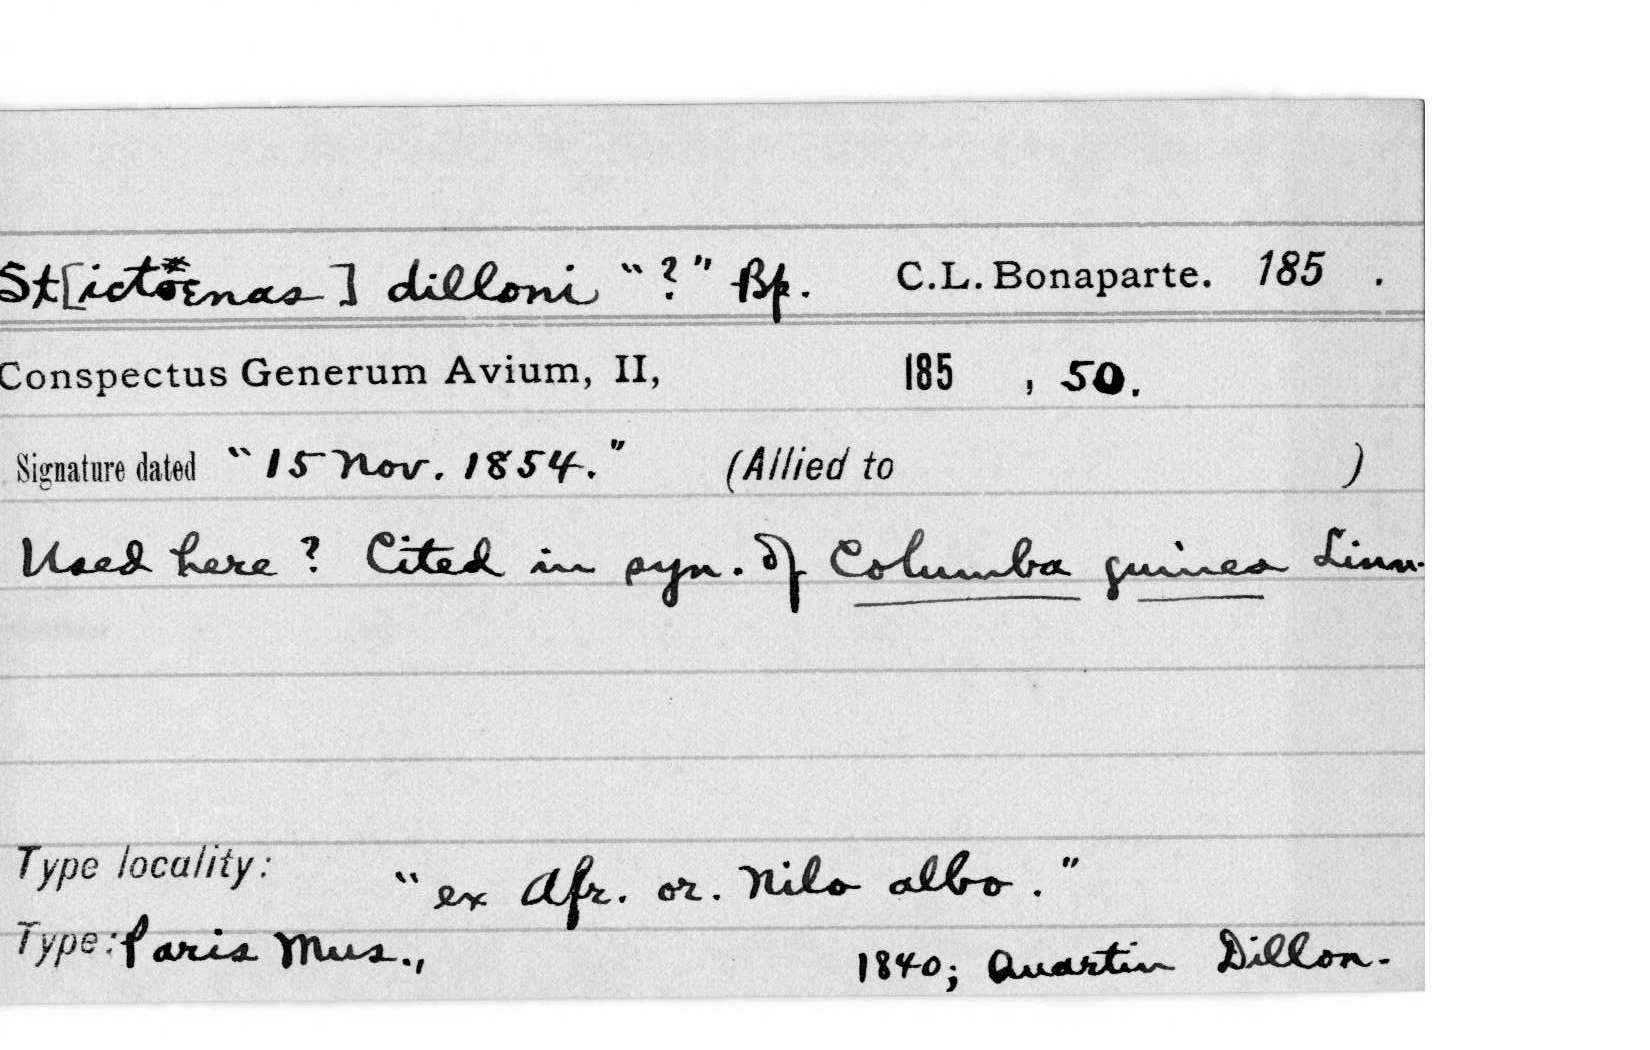 St[ictoenas] dilloni "?" Bp. C.L. Bonaparte. 185 .
Conspectus Generum Avium, II, 185 , 50.
Signature dated "15 Nov. 1854." (Allied to )
Used here? Cited in syn. of Columba guinea Linn.
Type locality: "ex Afr. or. Nilo albo."
Type: Paris Mus., 1840; Quartin Dillon.